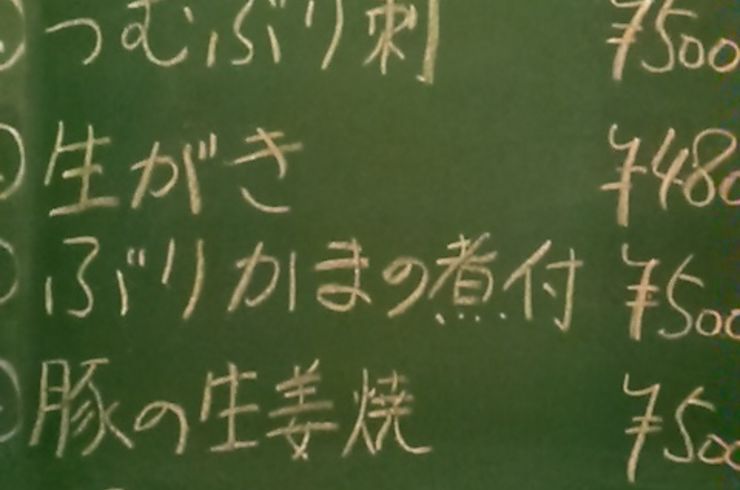 つむぶり刺 ¥500
生がき ¥480
ぶりかまの煮付 ¥500
豚の生姜焼 ¥500